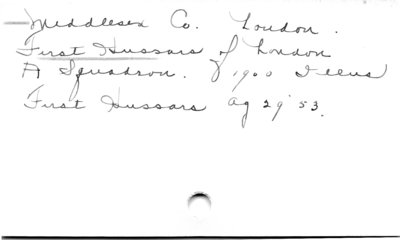 Middlesex Co. London.
First Hussars of London
A Squadron. 1900 Illus
First Hussars Ag 29 '53.